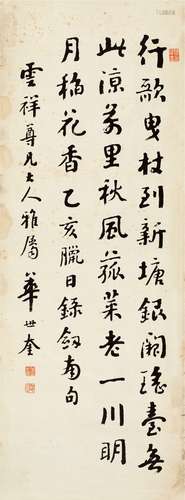 行歌曳杖到新塘銀闕瑤臺無
此涼萬里秋風菰菜老一川明
月稻花香乙亥臘日錄劍南句
雲祥尊兄大人雅屬華世奎